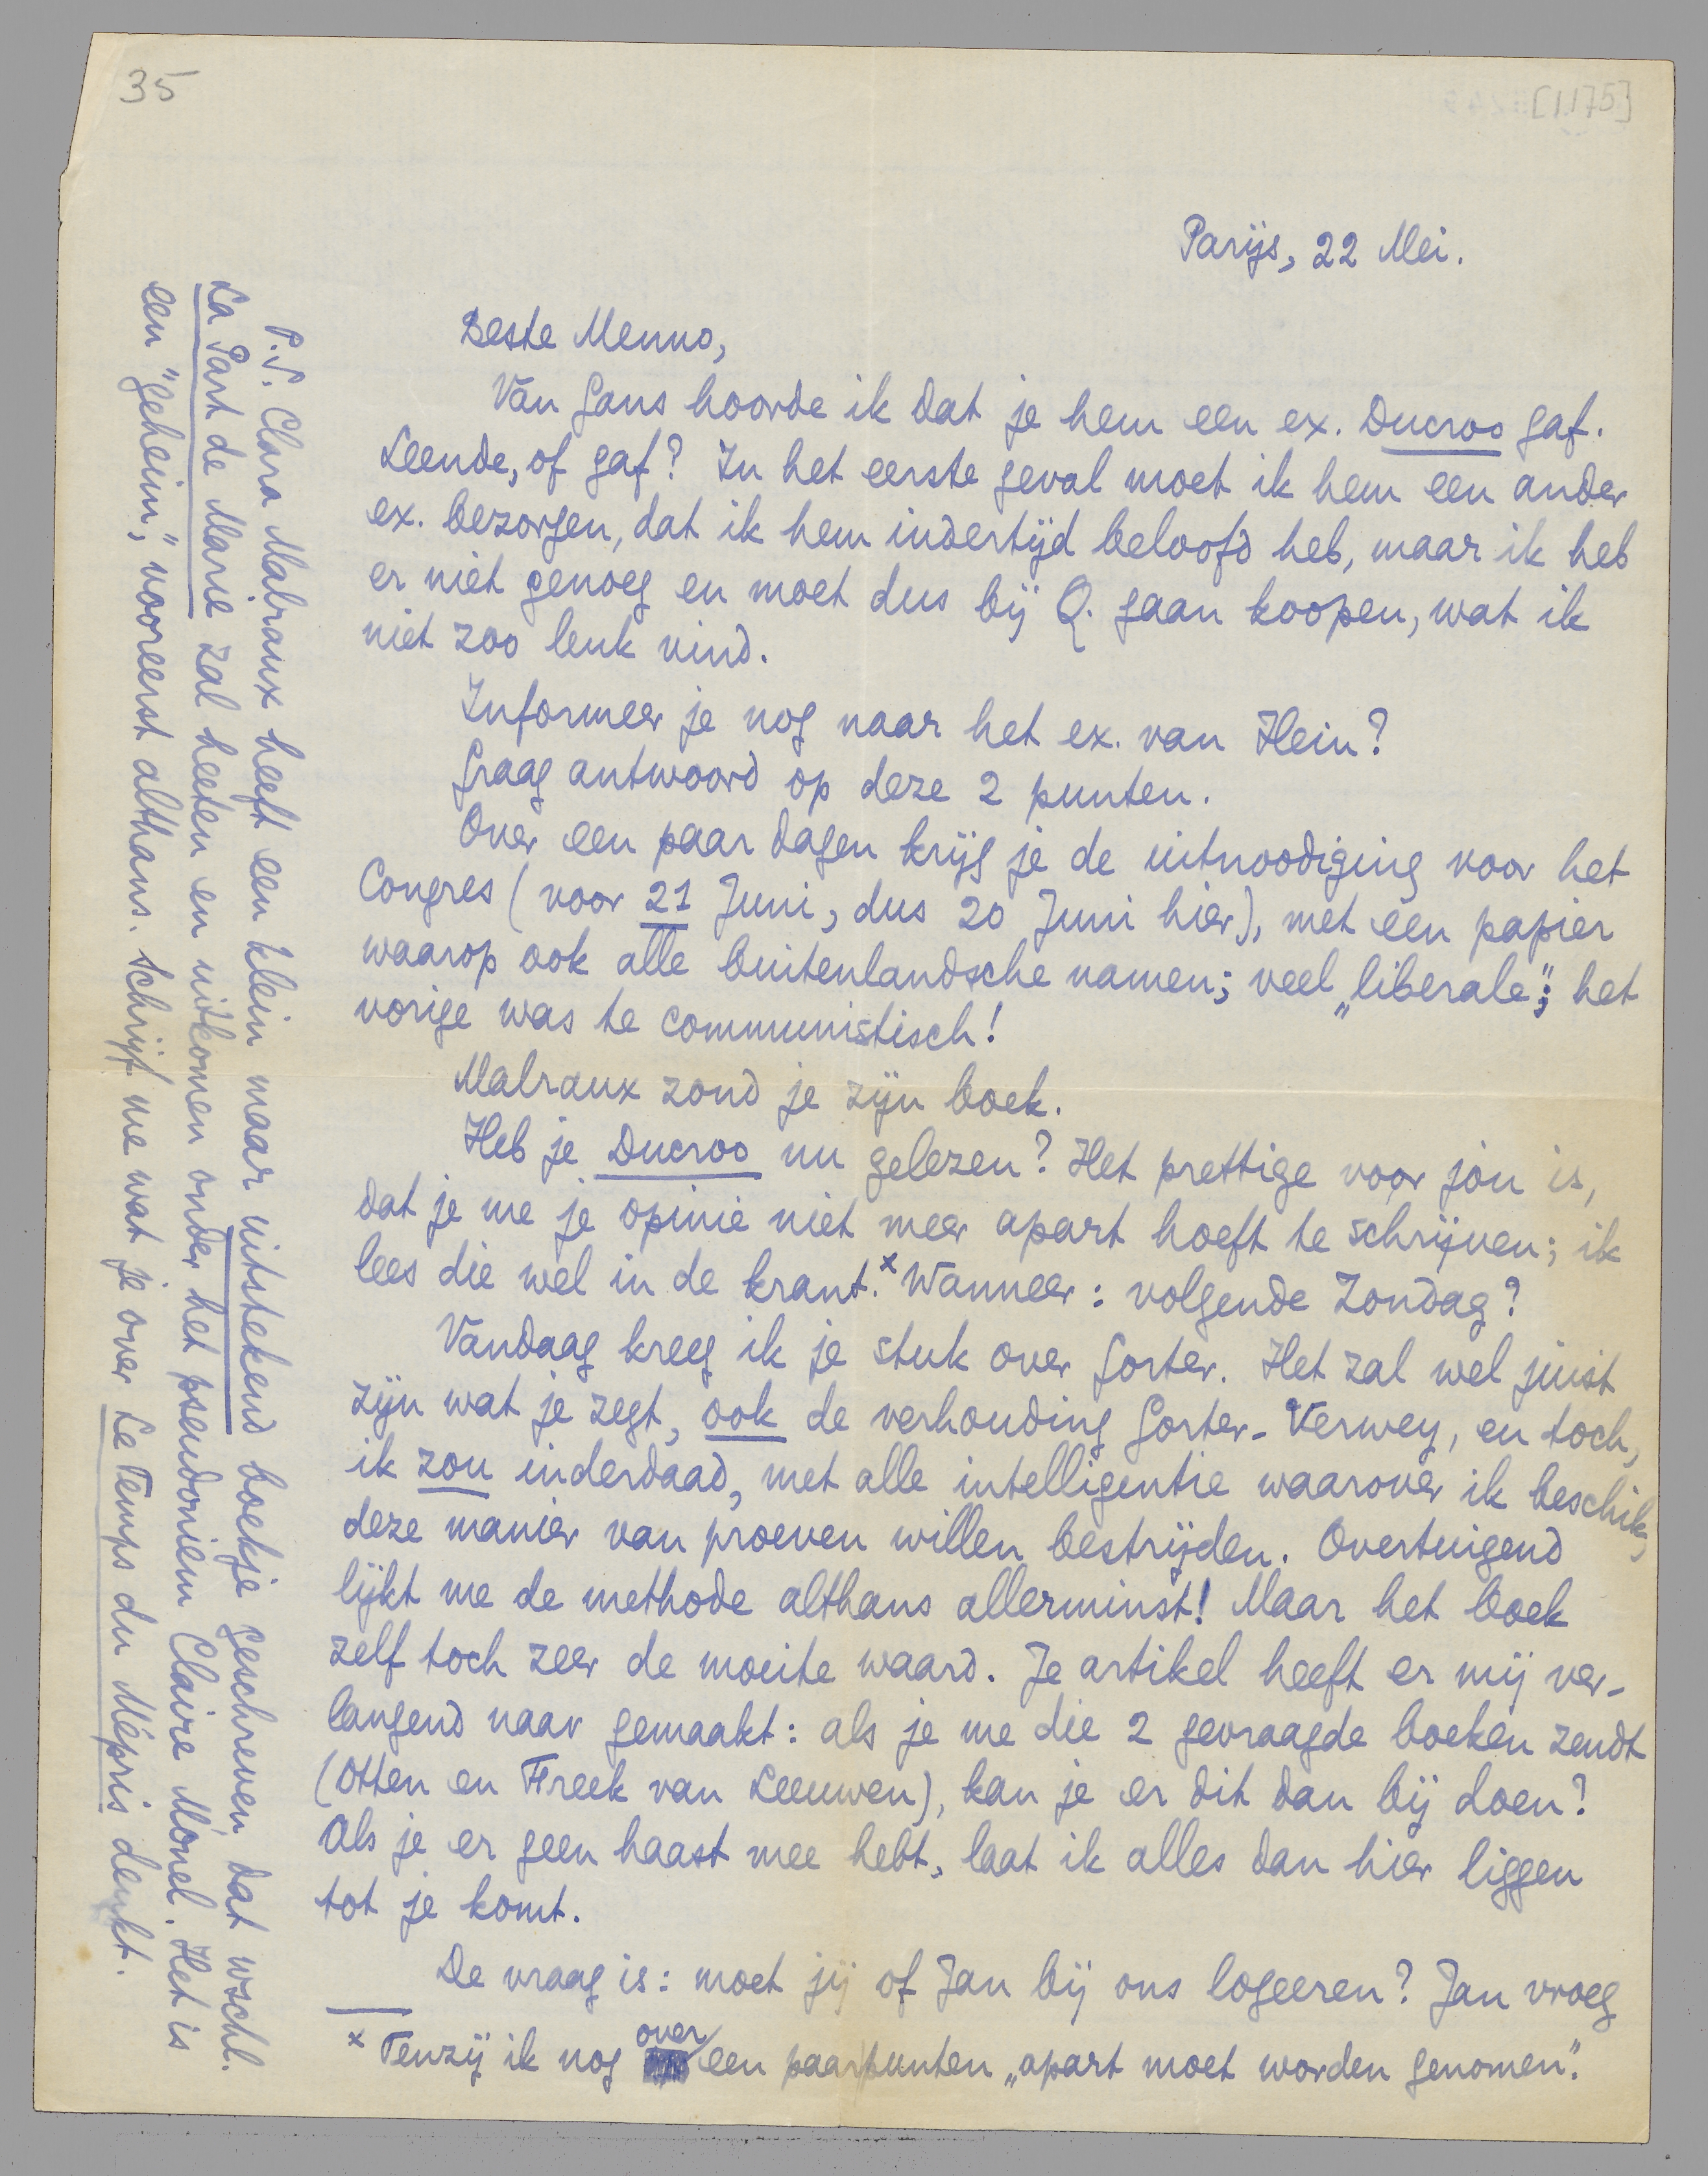 35
[1175]
Parijs, 22 Mei.
Beste Menno,
Van Gans hoorde ik dat je hem een ex. Ducroo gaf.
Leende, of gaf? In het eerste geval moet ik hem een ander
ex. bezorgen, dat ik hem indertijd beloofd heb, maar ik heb
er niet genoeg en moet dus bij Q. gaan koopen, wat ik
niet zoo leuk vind.
Informeer je nog naar het ex. van Hein?
Graag antwoord op deze 2 punten.
Over een paar dagen krijg je de uitnoodiging voor het
Congres (voor 21 Juni, dus 20 Juni hier), met een papier
waarop ook alle buitenlandsche namen; veel „liberale”; het
vorige was te communistisch!
Malraux zond je zijn boek.
Heb je Ducroo nu gelezen? Het prettige voor jòu is,
dat je me je opinie niet meer apart hoeft te schrijven; ik
lees die wel in de krant.x Wanneer: volgende Zondag?
Vandaag kreeg ik je stuk over Gorter. Het zal wel juist
zijn wat je zegt, ook de verhouding Gorter-Verwey, en toch,
ik zou inderdaad, met alle intelligentie waarover ik beschik,
deze manier van proeven willen bestrijden. Overtuigend
lijkt me de methode althans allerminst! Maar het boek
zelf toch zeer de moeite waard. Je artikel heeft er mij ver-
langend naar gemaakt: als je me die 2 gevraagde boeken zendt
(Otten en Freek van Leeuwen), kan je er dit dan bij doen?
Als je er geen haast mee hebt, laat ik alles dan hier liggen
tot je komt.
De vraag is: moet jij of Jan bij ons logeeren? Jan vroeg
x Tenzij ik nog over een paar punten „apart moet worden genomen”.
P.S. Clara Malraux heeft een klein maar uitstekend boekje geschreven dat wschl.
La Part de Marie zal heeten en uitkomen onder het pseudoniem Claire Monel. Het is
een "geheim," vooreerst althans. Schrijf me wat je over Le Temps du Mépris denkt.